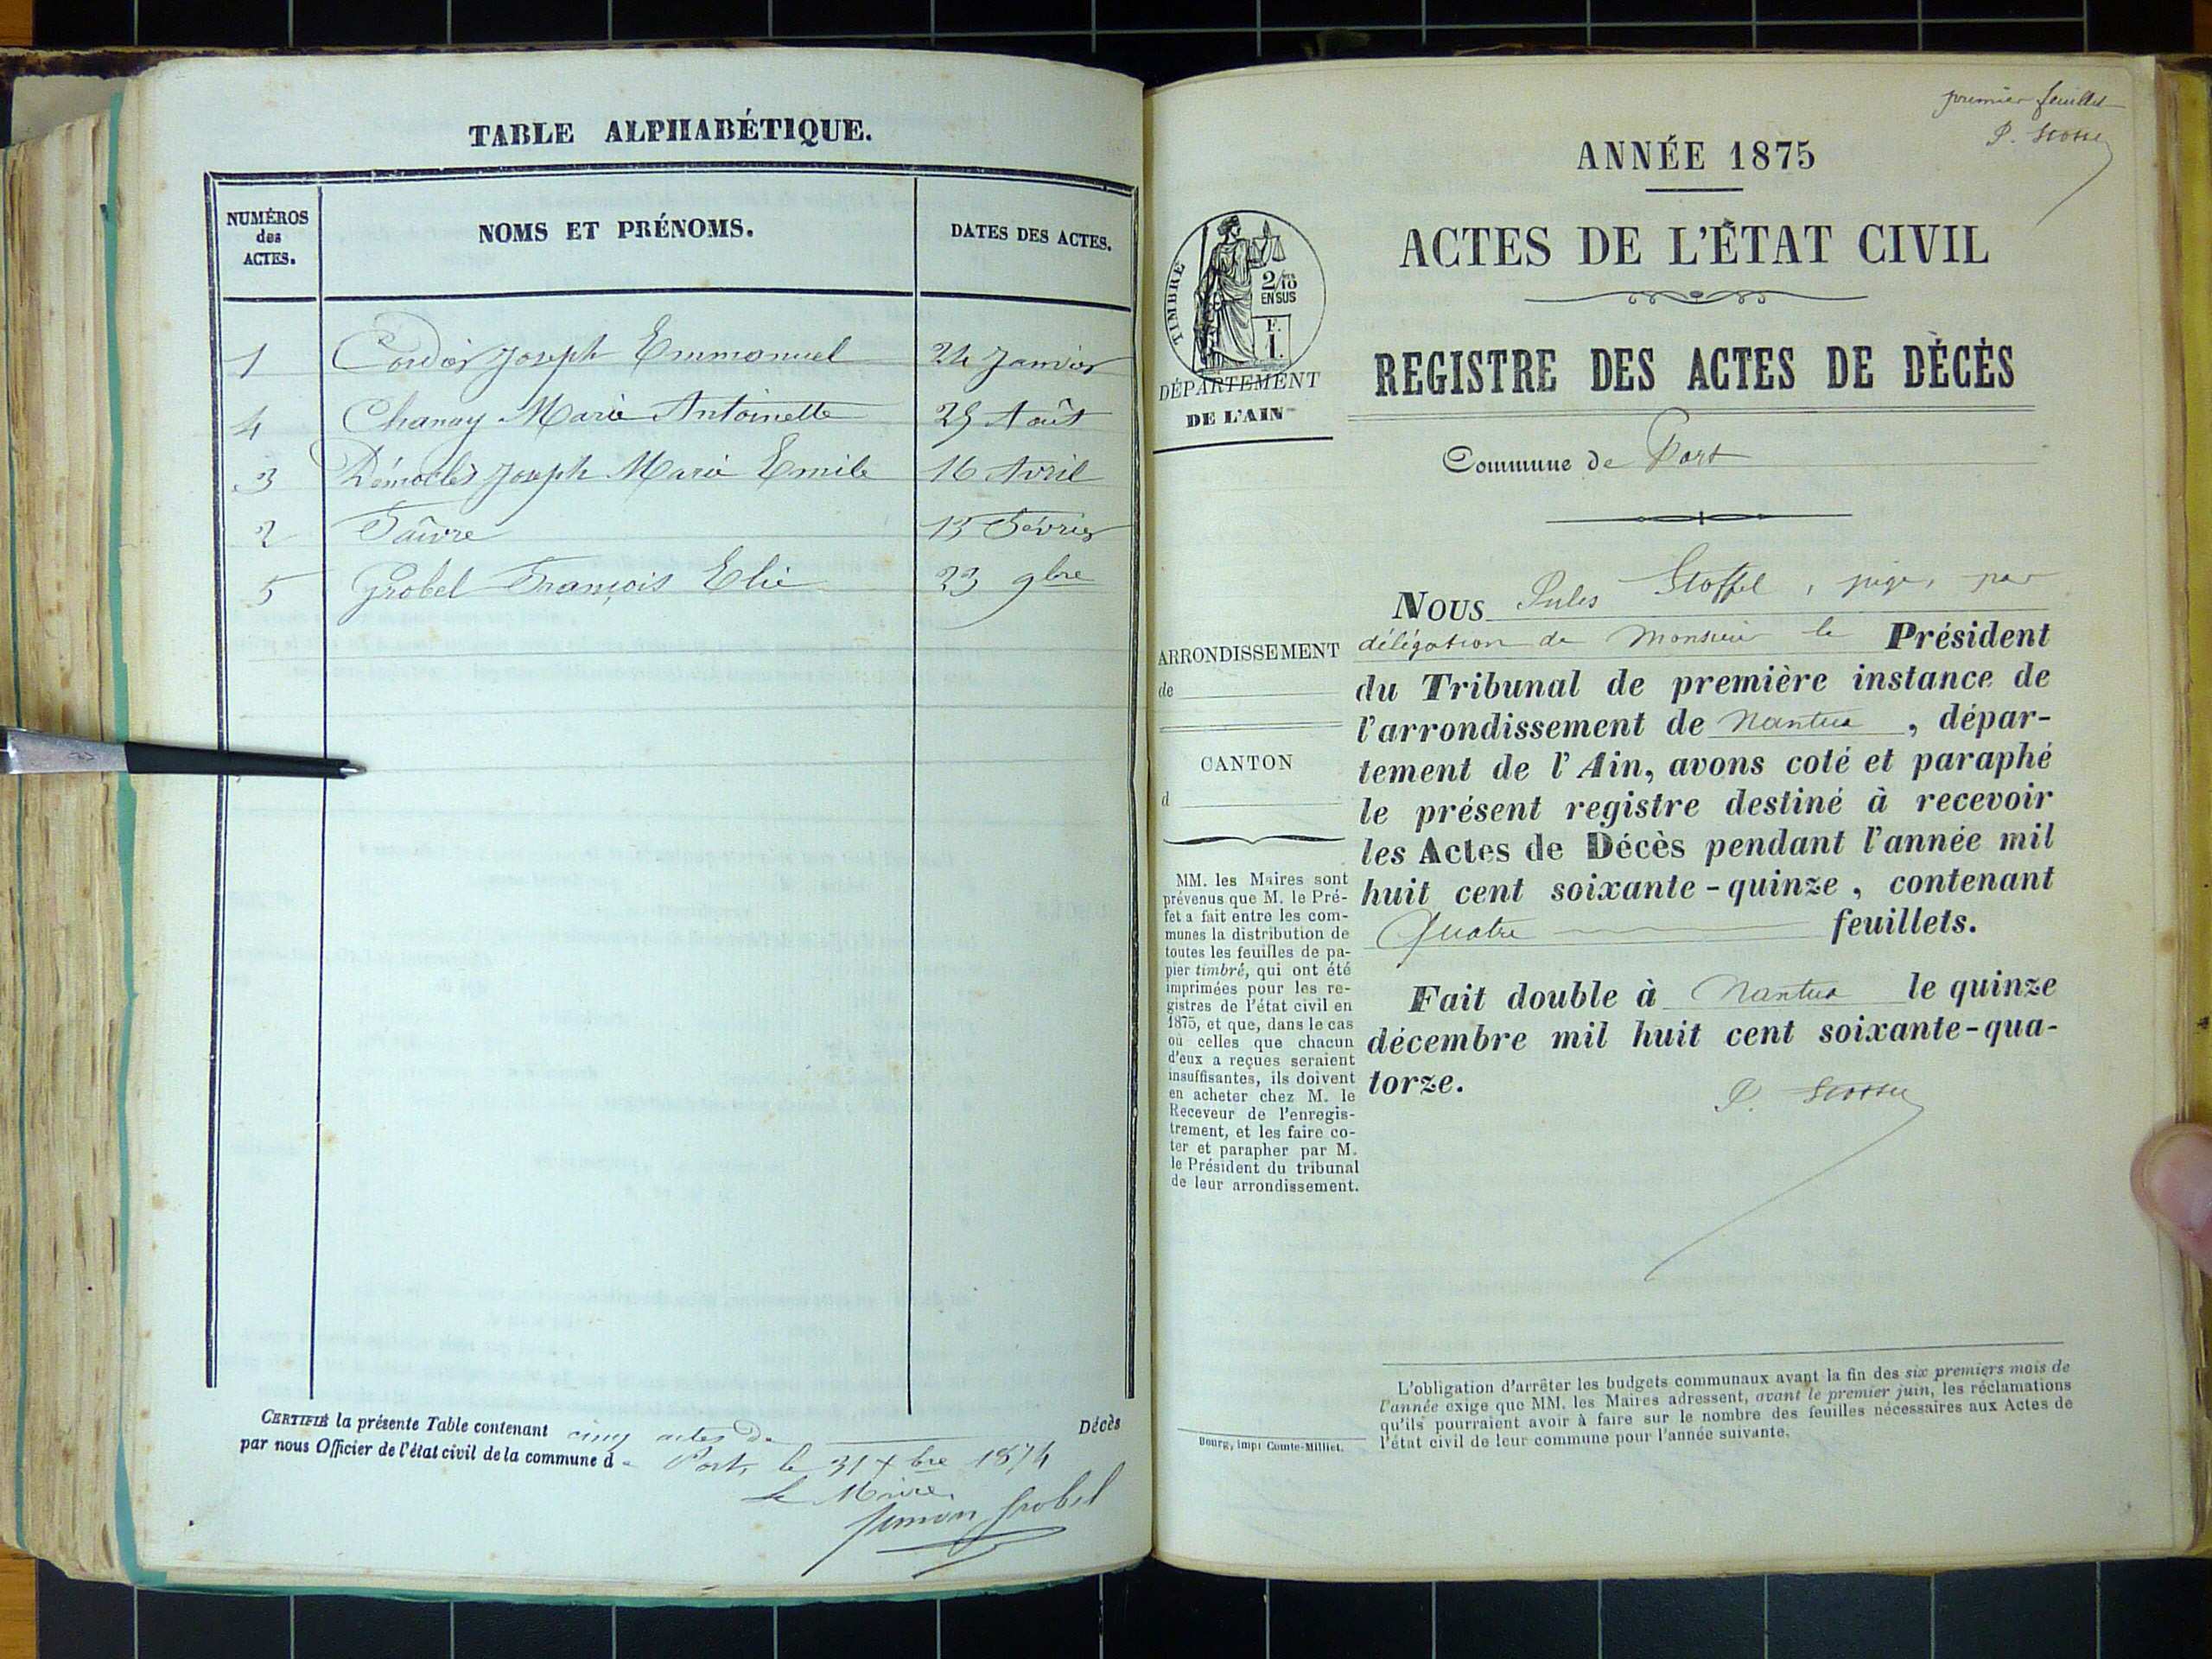 TABLE ALPHABÉTIQUE.
NUMÉROS
des
ACTES.
NOMS ET PRÉNOMS.
DATES DES ACTES.
1 Joseph Emmanuel 24 Janvier
4 Chanay Marie Antoinette 29 Août
3 Joseph Marie Emile 16 Avril
2 Faivre 13 Février
5 Grobel François Elie 23 9bre
CERTIFIÉ la présente Table contenant cinq actes de Décès
par nous Officier de l'état civil de la commune d e Port, le 31 xbre 1874
Le Maire,
Simon Grobel
premier feuillet
ANNÉE 1875
ACTES DE L'ÉTAT CIVIL
TIMBRE
2/10
EN SUS
F.
1.
DÉPARTEMENT
DE L'AIN
REGISTRE DES ACTES DE DÉCÈS
Commune de Port
ARRONDISSEMENT
de
CANTON
d
MM. les Maires sont
prévenus que M. le Pré-
fet a fait entre les com-
munes la distribution de
toutes les feuilles de pa-
pier timbré, qui ont été
imprimées pour les re-
gistres de l'état civil en
1875, et que, dans le cas
où celles que chacun
d'eux a reçues seraient
insuffisantes, ils doivent
en acheter chez M. le
Receveur de l'enregis-
trement, et les faire co-
ter et parapher par M.
le Président du tribunal
de leur arrondissement.
NOUS Jules Stoffel, juge, par
délégation de Monsieur le Président
du Tribunal de première instance de
l'arrondissement de Nantua, dépar-
tement de l'Ain, avons coté et paraphé
le présent registre destiné à recevoir
les Actes de Décès pendant l'année mil
huit cent soixante-quinze, contenant
Quatre feuillets.
Fait double à Nantua le quinze
décembre mil huit cent soixante-qua-
torze.
L'obligation d'arrêter les budgets communaux avant la fin des six premiers mois de
l'année exige que MM. les Maires adressent, avant le premier juin, les réclamations
qu'ils pourraient avoir à faire sur le nombre des feuilles nécessaires aux Actes de
l'état civil de leur commune pour l'année suivante.
Bourg, impr Comte-Milliet.